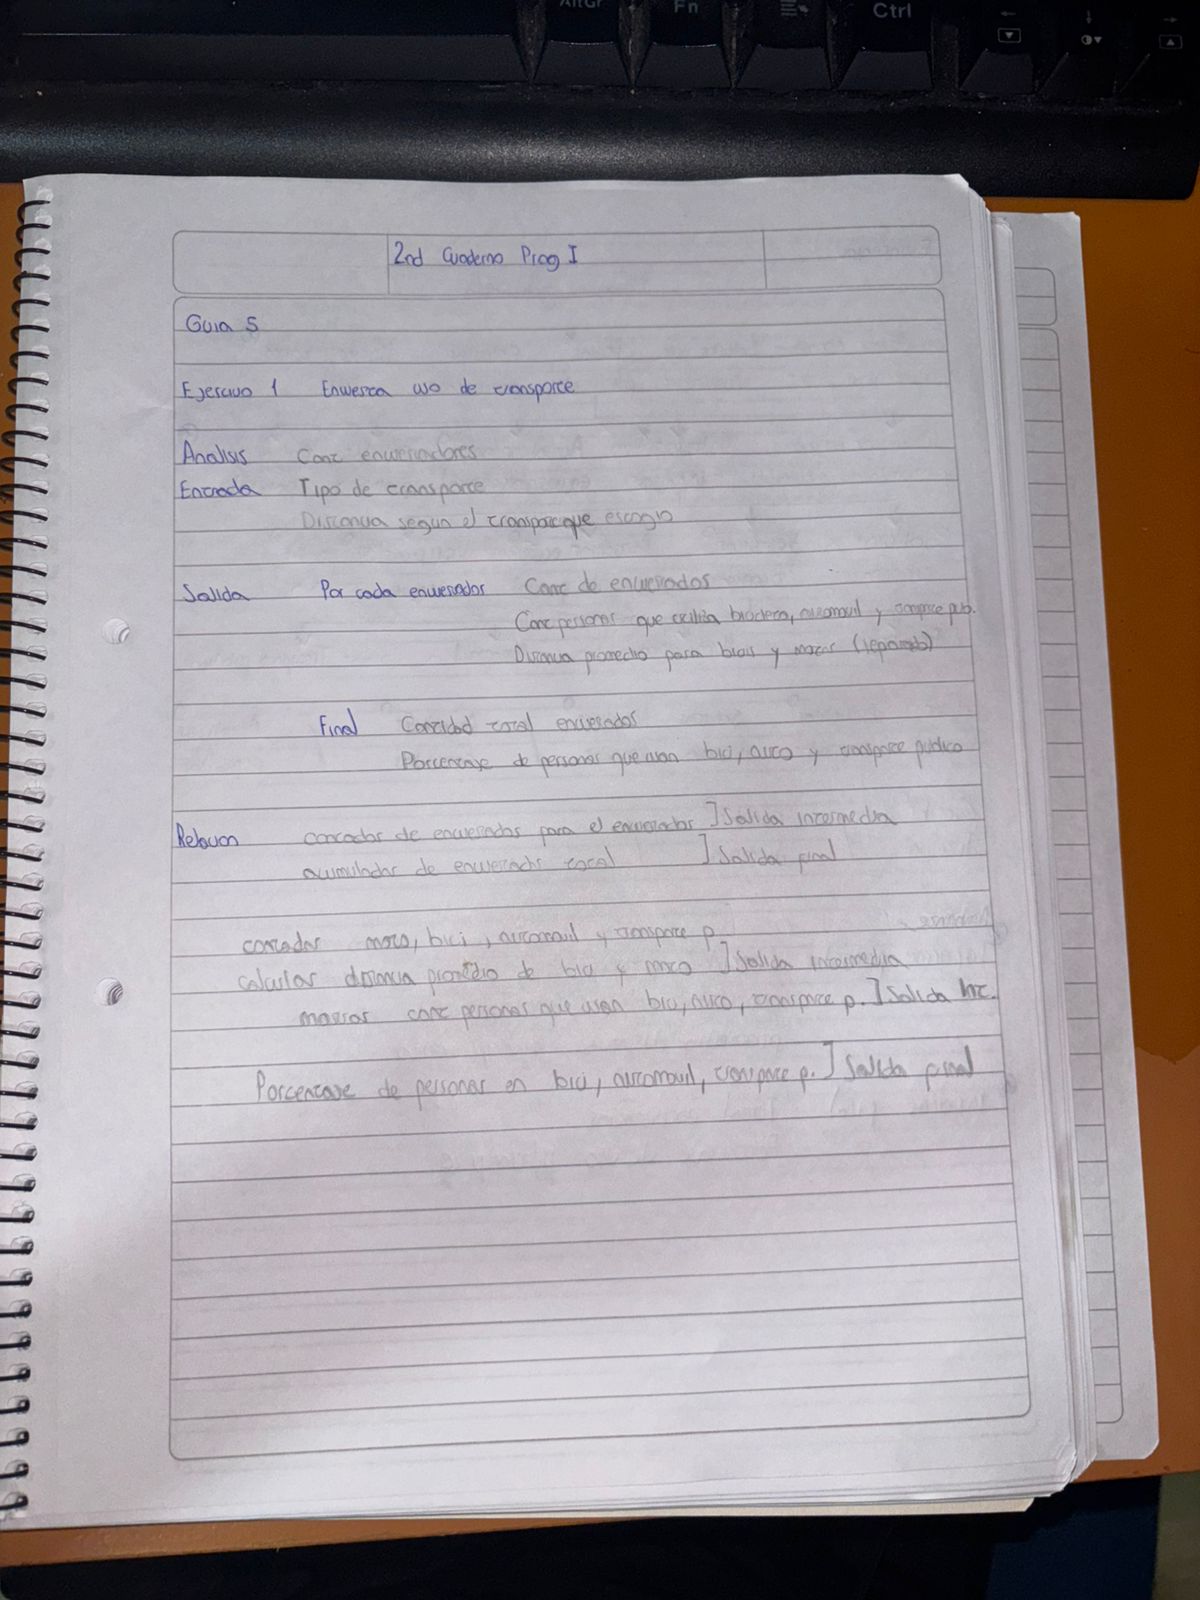 AltGr Fn Ctrl
2nd Cuaderno Prog I
Guia 5
Ejercicio 1 Encuesta uso de transporte
Analisis Cant encuestadores
Entrada Tipo de transporte
Distancia segun el transporte que escogio
Salida Por cada encuestador Cant de encuestados
Cant personas que utiliza bicicleta, automovil y transporte pub.
Distancia promedio para bicis y motos (separado)
Final Cantidad total encuestados
Porcentaje de personas que usan bici, auto y transporte publico
Relacion contador de encuestados para el encuestador ] Salida intermedia
acumulador de encuestados total ] Salida final
contador moto, bici, automovil y transporte p.
calcular distancia promedio de bici y moto ] Salida intermedia
mostrar cant personas que usan bici, auto, transporte p. ] Salida Int.
Porcentaje de personas en bici, automovil, transporte p. ] Salida final